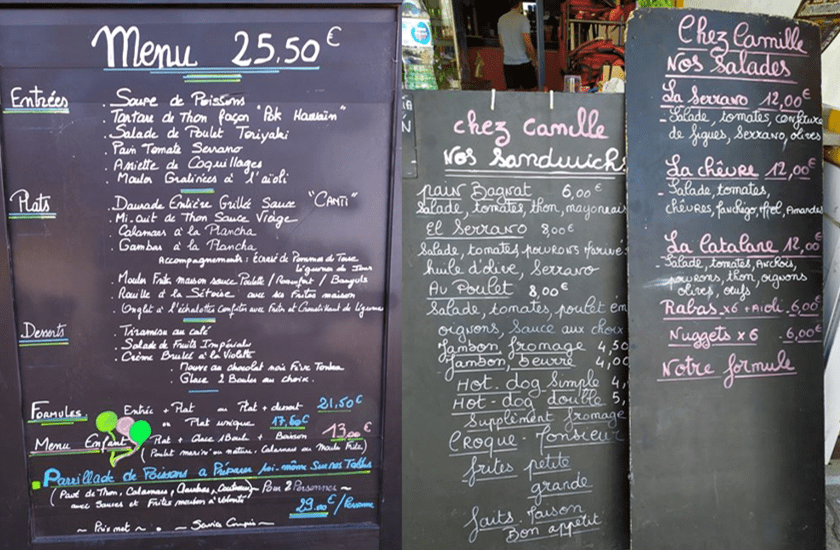 Menu 25,50€
Entrées
. Soupe de Poissons
. Tartare de Thon façon "Pok Hawaïn"
. Salade de Poulet Teriyaki
. Pain Tomate Serrano
. Assiette de Coquillages
. Moules Gratinées à l'aïoli
Plats
. Daurade Entière Grillé Sauce "CANTI"
. Mi-cuit de Thon Sauce Vierge
. Calamars à la Plancha
. Gambas à la Plancha
Accompagnements : écrasé de Pommes de Terre
Légumes du Jour
. Moules Frites maison sauce Poulette / Roquefort / Banyuls
. Rouille à la Sétoise avec ses Frites maison
. Onglet à l'échalottes confites avec Frites et Légumes
Desserts
. Tiramisu au café
. Salade de Fruits
. Crème Brulée à la Violette
. Mousse au chocolat noir Fève Tonka
. Glace 2 Boules au choix.
Formules
Entrée + Plat ou Plat + dessert 21,50€
ou Plat unique 17,50€
Menu Enfant
Plat + Glace 1Boule + Boisson 13,00€
(Poulet mariné ou nature, Calamars ou Moule Frite)
Parrillade de Poissons à Préparer soi-même Sur nos Tables
(Pavé de Thon, Calamars, Gambas, Couteaux) Pour 2 Personnes ~
avec Sauces et Frites maison à Volonté 29.00€/Personne
~ Prix net ~ • ~ Service Compris ~
chez Camille
Nos Sandwichs
pain Bagnat 6,00€
Salade, tomates, thon, mayonnais
El Serrano 8,00€
Salade, tomates, poivrons marinés
huile d'olive, Serrano
Au Poulet 8,00€
Salade, tomates, poulet em
oignons, Sauce aux choix
Jambon, fromage 4,50
Jambon, beurre 4,00
Hot-dog Simple 4,
Hot-dog double 5,
Supplément fromage
Croque-Monsieur
frites petite
grande
faits maison
Bon appétit
Chez Camille
Nos Salades
La Serrano 12,00€
- Salade, tomates, confiture
de figues, Serrano, olives
La chèvre 12,00€
- Salade, tomates,
chèvres, Amandes
La Catalane 12,00€
- Salade, tomates, Anchois,
poivrons, thon, oignons
olives, oeufs
Rabas x6 + Aioli 6,00€
Nuggets x 6 6,00€
Notre formule